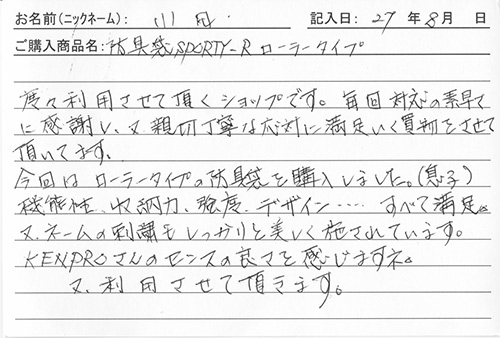 お名前(ニックネーム): 川田. 記入日: 27 年 8月 日
ご購入商品名: 防具袋SPORTY-R ローラータイプ
度々利用させて頂くショップです。毎回対応の素早さ
に感謝し、又親切丁寧な応対に満足いく買物をさせて
頂いてます。
今回はローラータイプの防具袋を購入しました。(息子)
機能性、収納力、強度、デザイン…… すべて満足。
又、ネームの刺繍もしっかりと美しく施されています。
KENPROさんのセンスの良さを感じますネ。
又、利用させて頂きます。